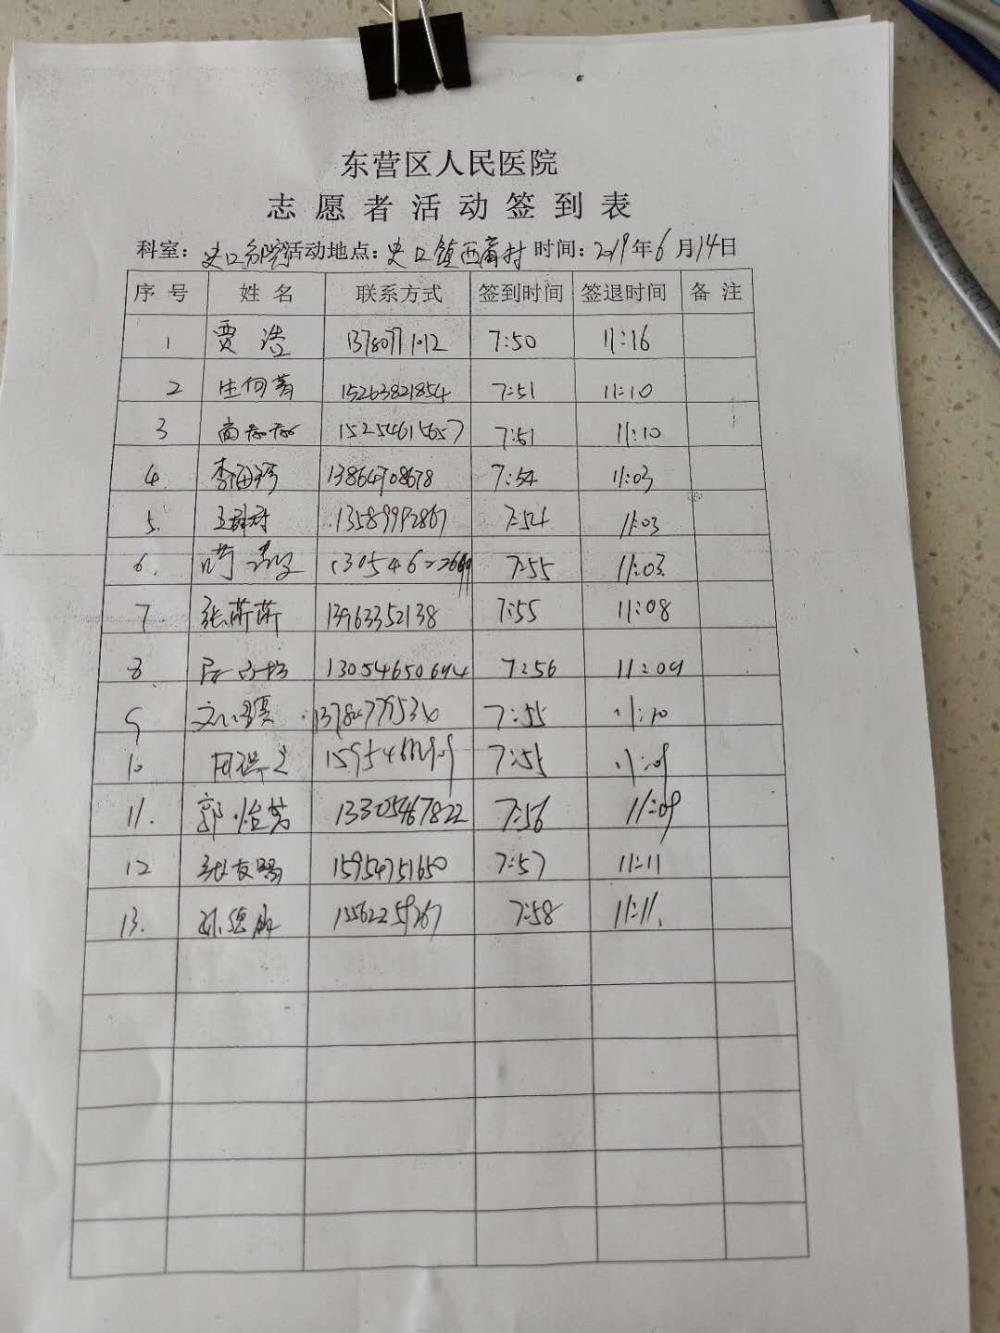 东营区人民医院
志愿者活动签到表
科室：史口分院 活动地点：史口镇西商村 时间：2019年6月14日
序号 姓名 联系方式 签到时间 签退时间 备注
1 贾浩 7:50 11:16
2 15263821854 7:51 11:10
3 15254615657 7:51 11:10
4 13864708678 7:54 11:03
5. 13589992867 7:54 11:03
6. 7:55 11:03
7 张蒂蒂 13963352138 7:55 11:08
8 13054650694 7:56 11:09
9 7:55 11:10
10 7:55 11:09
11. 郭怡芳 13305467822 7:56 11:09
12 15954751650 7:57 11:11
13. 15562259267 7:58 11:11.